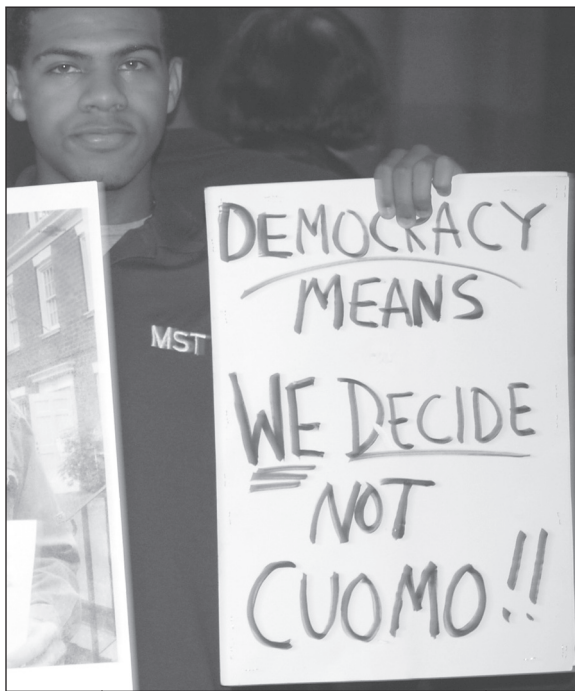 DEMOCRACY
MEANS
WE DECIDE
NOT
CUOMO!!
MST